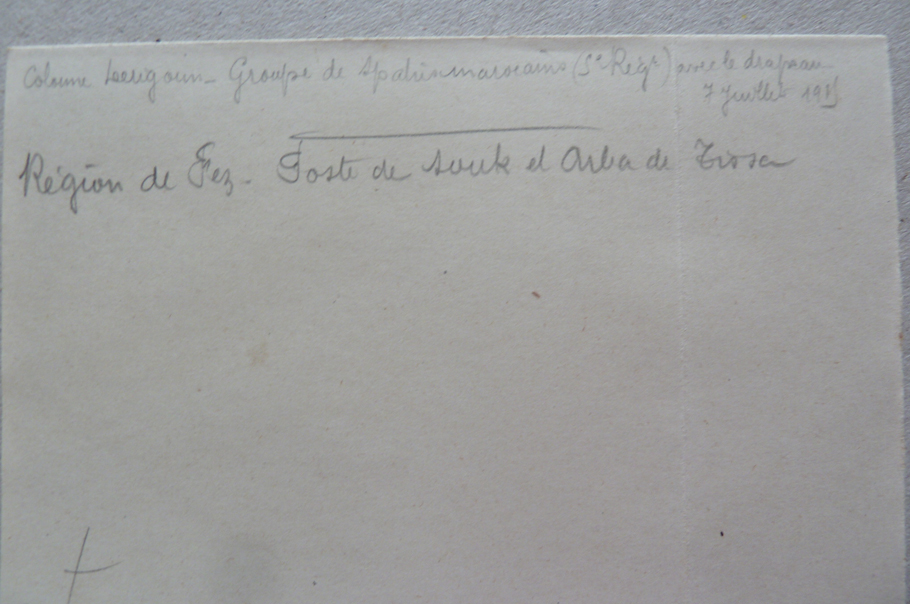 Colonne - Groupe de Spahis marocains (5e Régt) avec le drapeau
7 Juillet
Région de Fez - Poste de Souk el Arba de Tissa